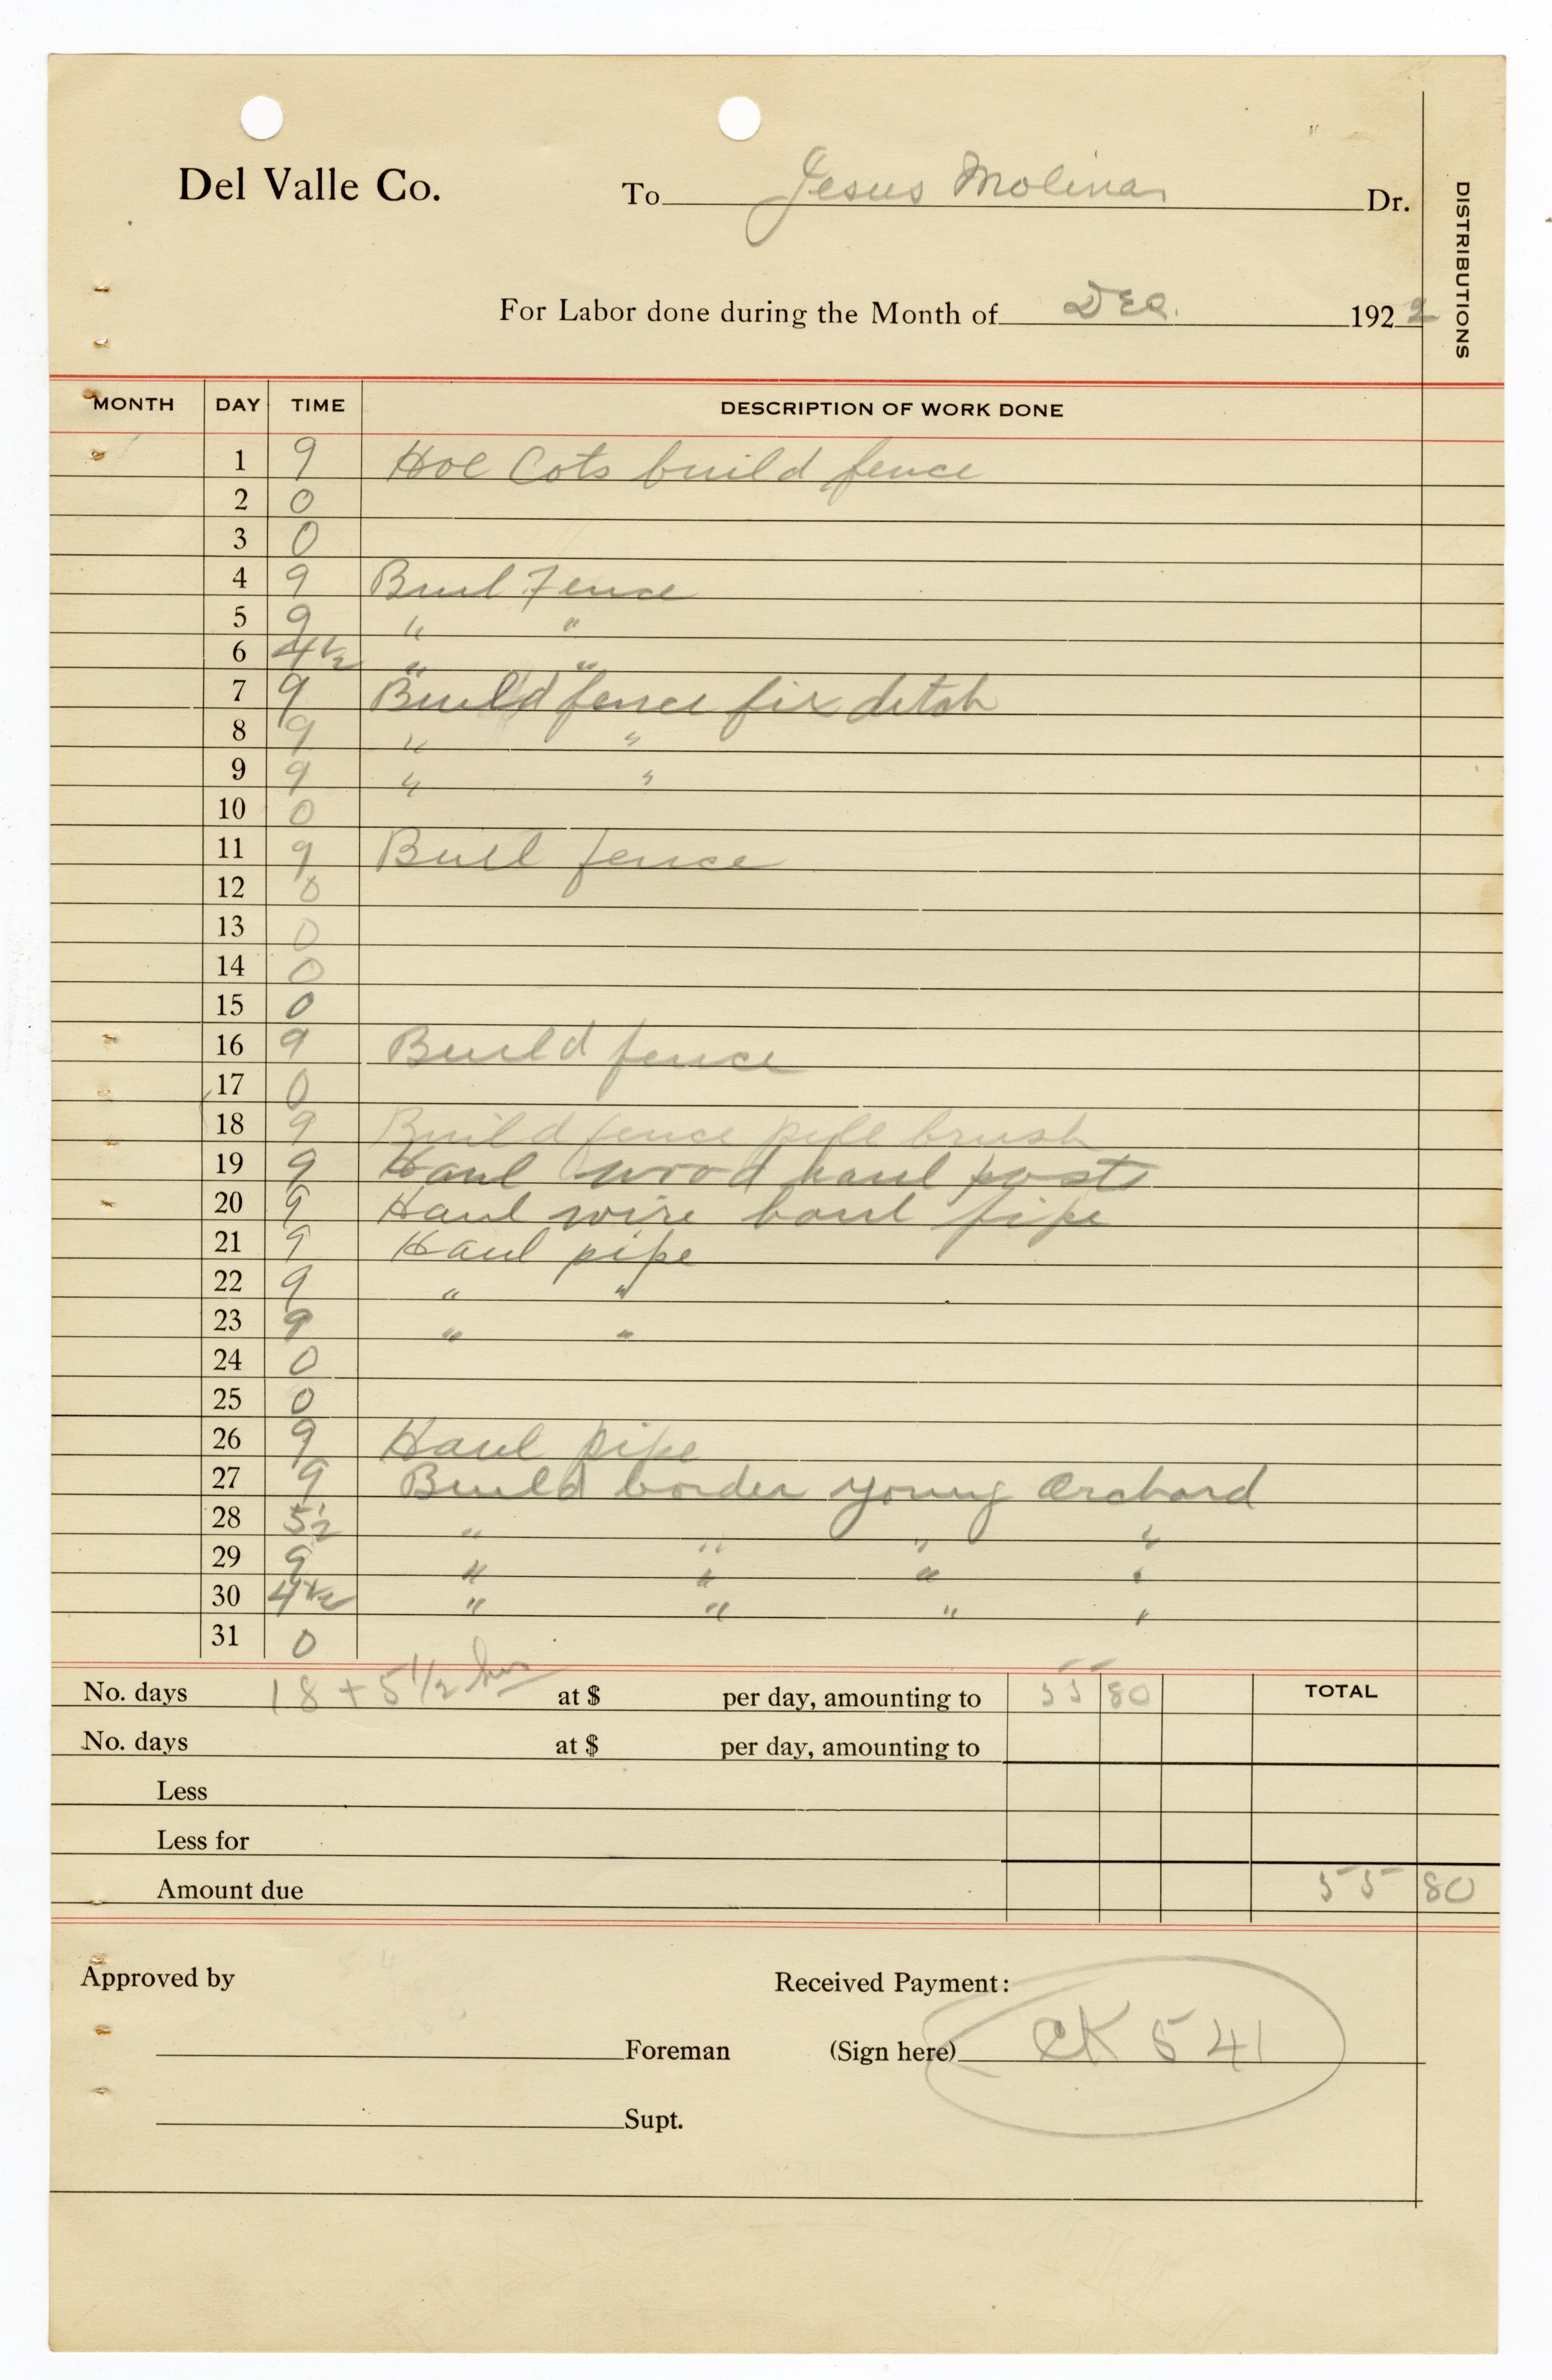 Del Valle Co. To Jesus Molina Dr.
DISTRIBUTIONS
For Labor done during the Month of Dec. 1922
MONTH DAY TIME DESCRIPTION OF WORK DONE
1 9 Hoe Cots build fence
2 0
3 0
4 9 Buil Fence
5 9 " "
6 4 1/2 " "
7 9 Build fence fix ditch
8 9 " "
9 9 " "
10 0
11 9 Buil fence
12 0
13 0
14 0
15 0
16 9 Build fence
17 0
18 9 Build fence pile brush
19 9 Haul wood haul posts
20 9 Haul wire haul pipe
21 9 Haul pipe
22 9 " "
23 9 " "
24 0
25 0
26 9 Haul pipe
27 9 Build border young Orchard
28 5 1/2 " " " "
29 9 " " " "
30 4 1/2 " " " "
31 0
No. days 18 + 5 1/2 hrs at $ per day, amounting to 55 80 TOTAL
No. days at $ per day, amounting to
Less
Less for
Amount due 55 80
Approved by Received Payment:
Foreman (Sign here) CK 541
Supt.